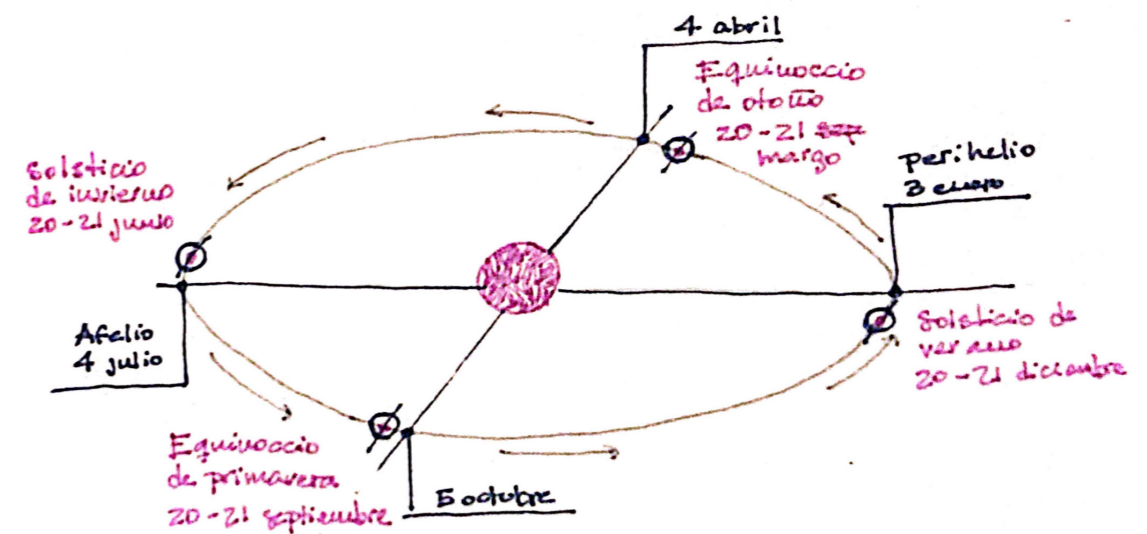 4 abril
Equinoccio
de otoño
20-21 sep
marzo
perihelio
3 enero
Solsticio
de invierno
20-21 junio
Afelio
4 julio
Solsticio de
verano
20-21 diciembre
Equinoccio
de primavera
20-21 septiembre
5 octubre